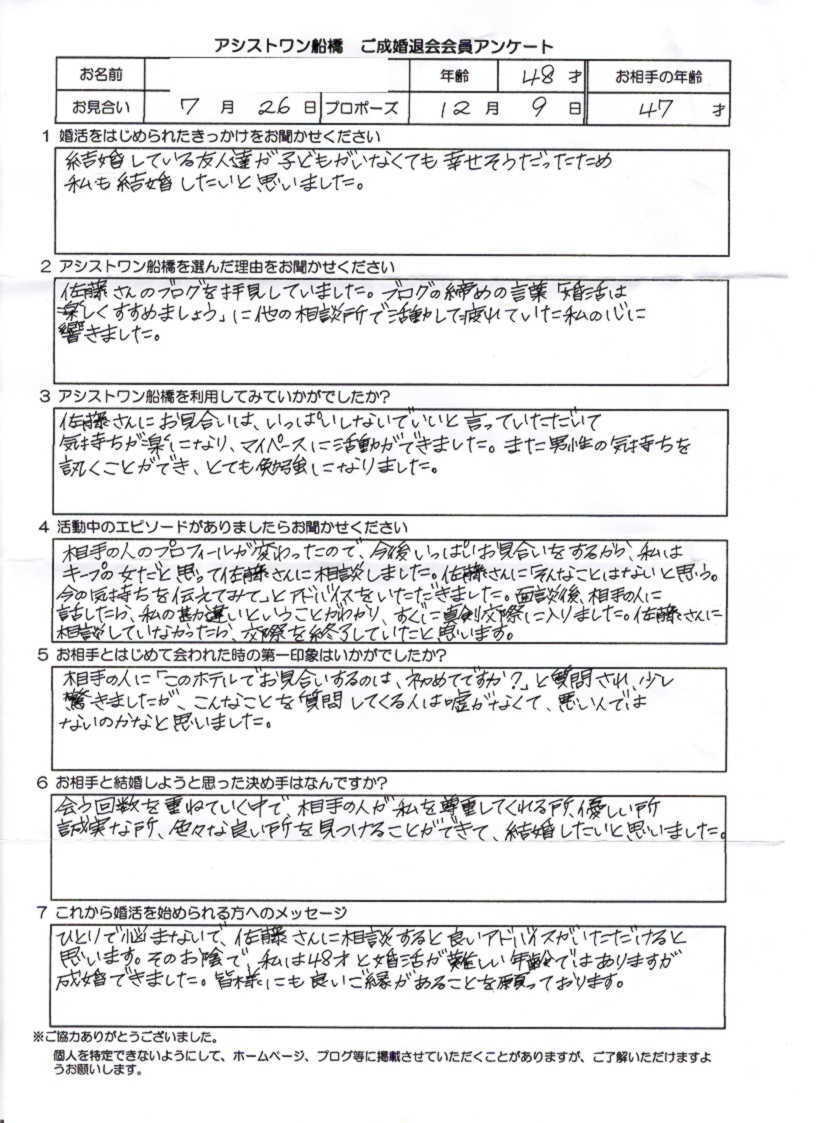 アシストワン船橋 ご成婚退会会員アンケート
お名前 年齢 48 才 お相手の年齢
お見合い 7 月 26 日 プロポーズ 12 月 9 日 47 才
1 婚活をはじめられたきっかけをお聞かせください
結婚している友人達が子どもがいなくても幸せそうだったため
私も結婚したいと思いました。
2 アシストワン船橋を選んだ理由をお聞かせください
佐藤さんのブログを拝見していました。ブログの締めの言葉「婚活は
楽しくすすめましょう」に他の相談所で活動して疲れていた私の心に
響きました。
3 アシストワン船橋を利用してみていかがでしたか?
佐藤さんにお見合いは、いっぱいしないでいいと言っていただいて
気持ちが楽になり、マイペースに活動ができました。また男性の気持ちを
訊くことができ、とても勉強になりました。
4 活動中のエピソードがありましたらお聞かせください
相手の人のプロフィールが変わったので、今後いっぱいお見合いをするから、私は
キープの女だと思って佐藤さんに相談しました。佐藤さんに「そんなことはないと思う。
今の気持ちを伝えてみて」とアドバイスをいただきました。面談後、相手の人に
話したら、私の勘違いということがわかり、すぐに真剣交際に入りました。佐藤さんに
相談していなかったら、交際を終了していたと思います。
5 お相手とはじめて会われた時の第一印象はいかがでしたか?
相手の人に「このホテルでお見合いするのは、初めてですか?」と質問され、少し
驚きましたが、こんなことを質問してくる人は嘘がなくて、悪い人では
ないのかなと思いました。
6 お相手と結婚しようと思った決め手はなんですか?
会う回数を重ねていく中で、相手の人が私を尊重してくれる所、優しい所
誠実な所、色々な良い所を見つけることができて、結婚したいと思いました。
7 これから婚活を始められる方へのメッセージ
ひとりで悩まないで、佐藤さんに相談すると良いアドバイスがいただけると
思います。そのお陰で、私は48才と婚活が難しい年齢ではありますが
成婚できました。皆様にも良いご縁があることを願っております。
※ご協力ありがとうございました。
個人を特定できないようにして、ホームページ、ブログ等に掲載させていただくことがありますが、ご了解いただけますよ
うお願いします。